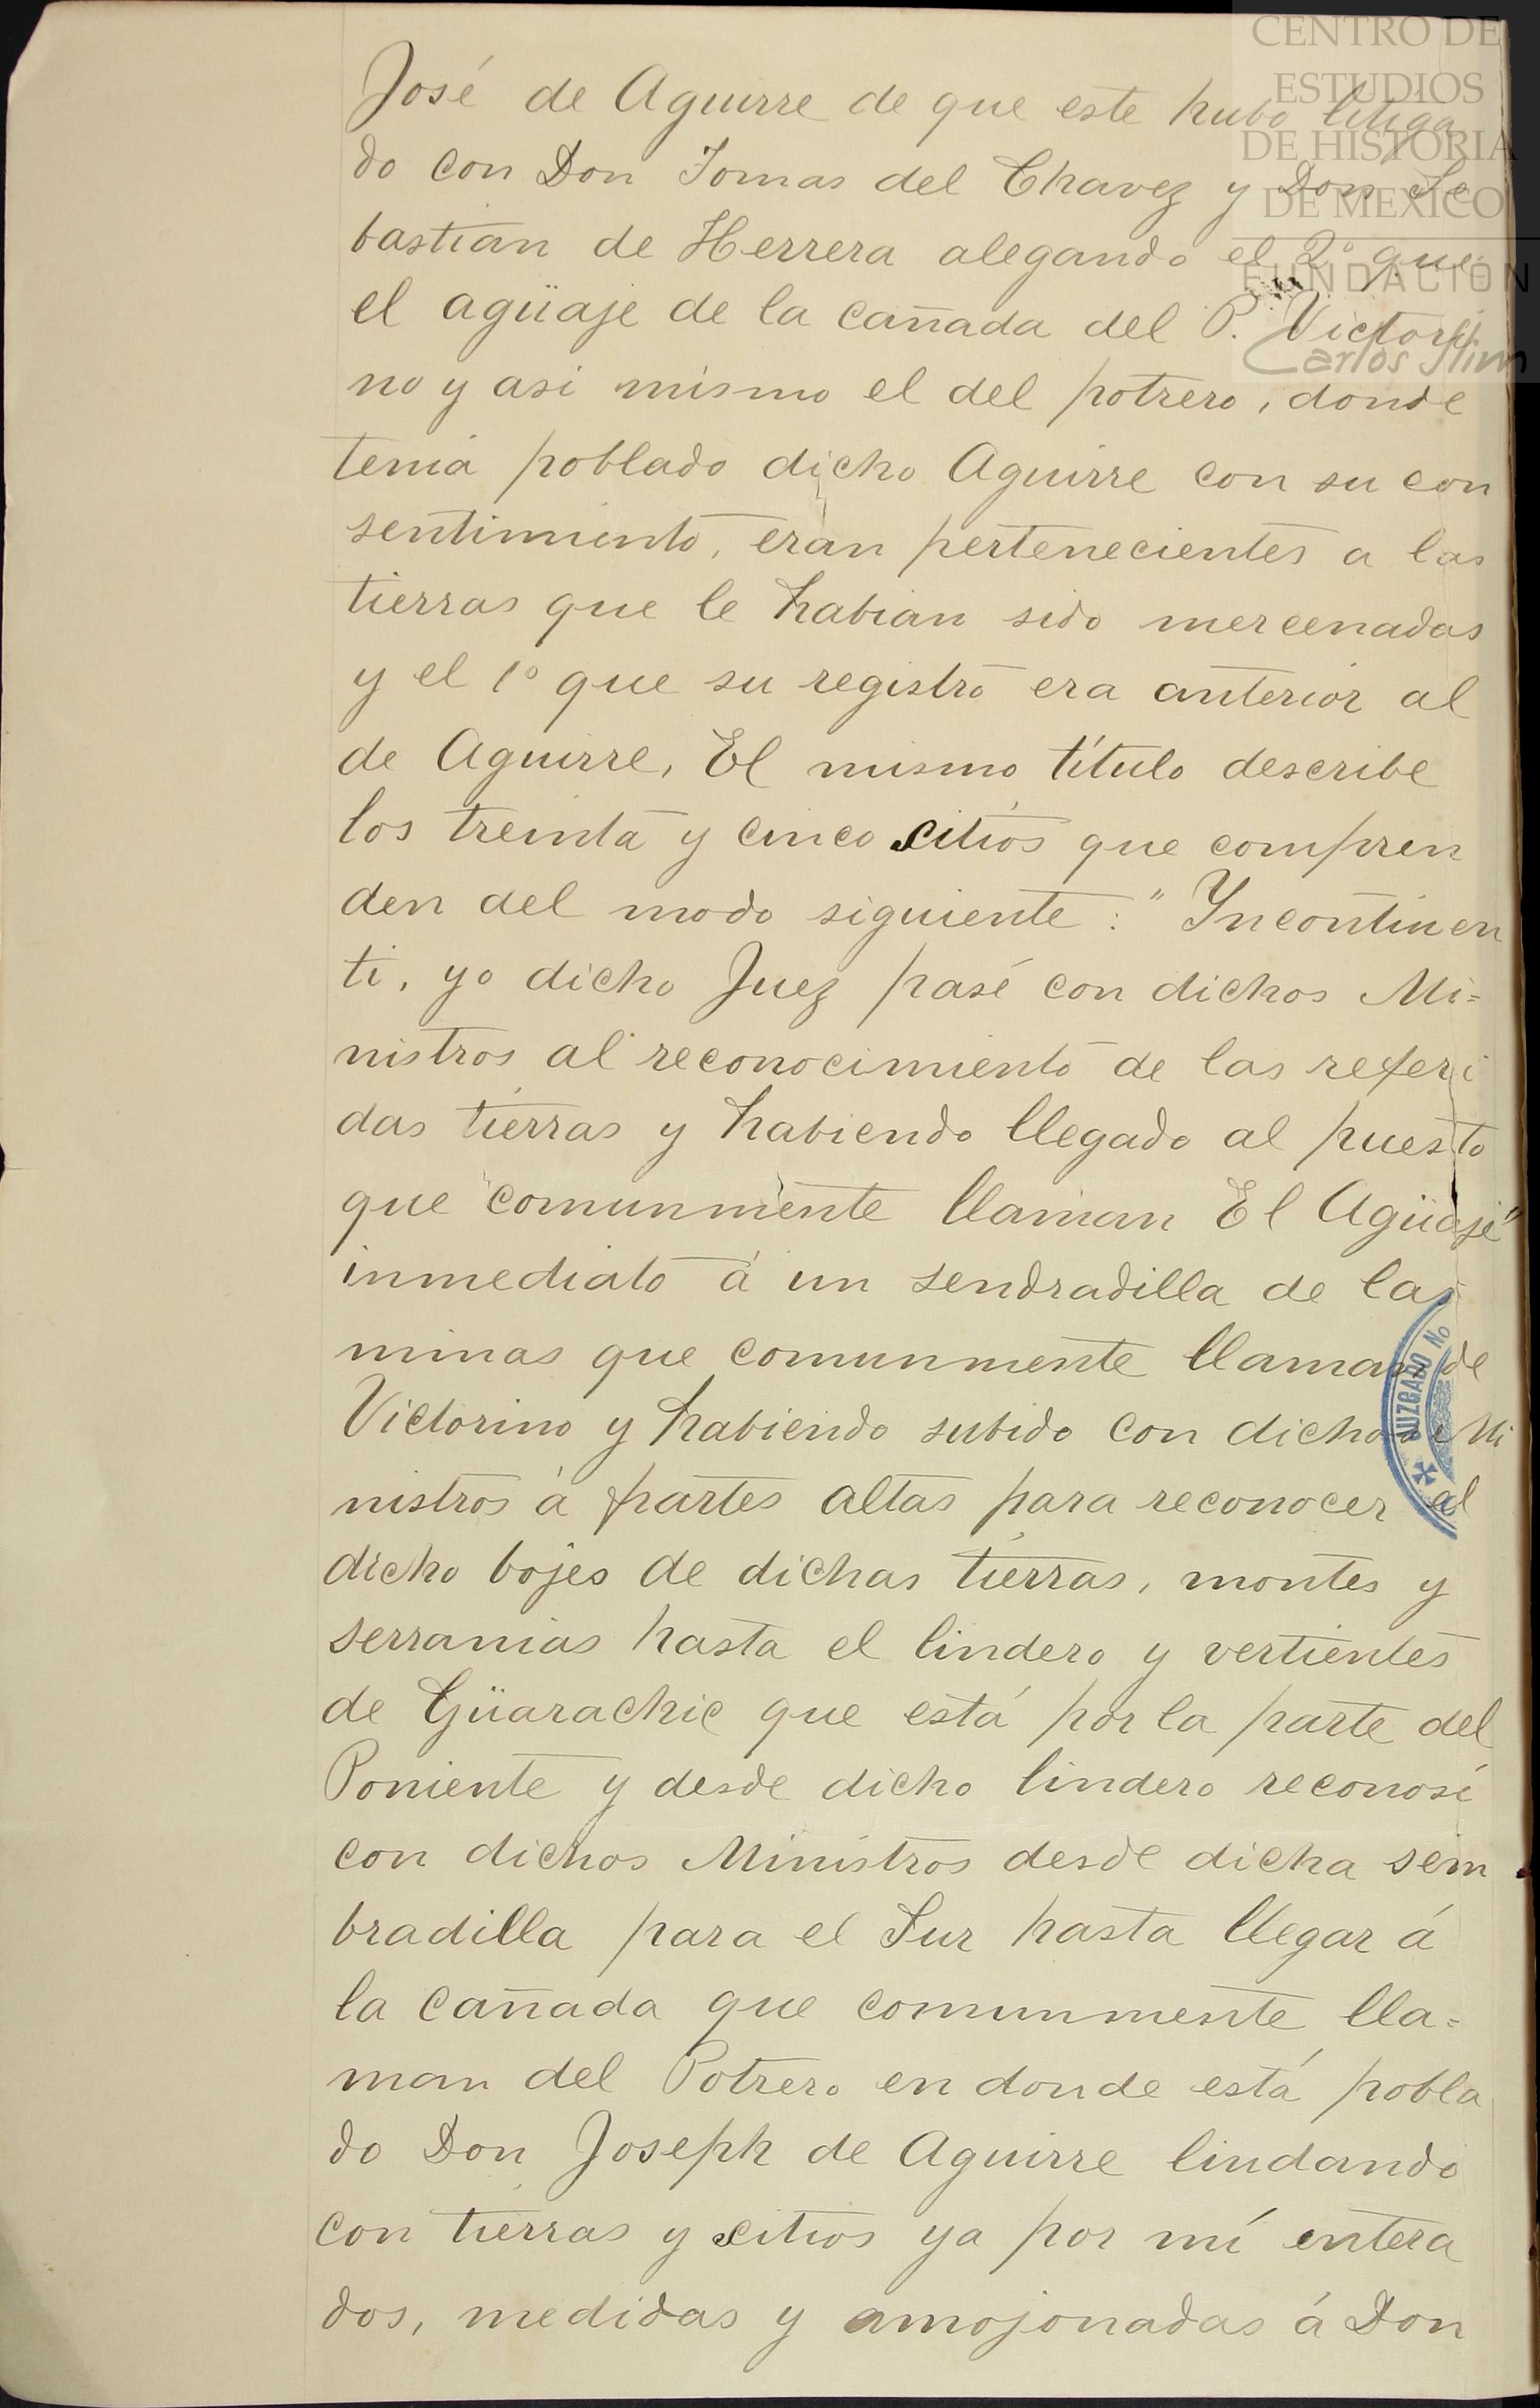 CENTRO DE
ESTUDIOS
DE HISTORIA
DE MEXICO
FUNDACIÓN
Carlos Slim
José de Aguirre de que este hubo litiga
do con Don Tomas del Chavez y Don Se
bastian de Herrera alegando el 2º que
el agüaje de la cañada del P. Victori
no y asi mismo el del potrero, donde
tenia poblado dicho Aguirre con su con
sentimiento, eran pertenecientes a las
tierras que le habian sido mercenadas
y el 1º que su registro era anterior al
de Aguirre, El mismo título describe
los treinta y cinco sitios que compren
den del modo siguiente: "Yncontinen
ti, yo dicho Juez pasé con dichos Mi=
nistros al reconocimiento de las referi
das tierras y habiendo llegado al puesto
que comunmente llaman El Agüaje"
inmediato á un sendradilla de las
minas que comunmente llaman de
Victorino y habiendo subido con dichos Mi
nistros á partes altas para reconocer el
dicho bojes de dichas tierras, montes y
serranias hasta el lindero y vertientes
de Güarachic que está por la parte del
Poniente y desde dicho lindero reconosí
con dichos Ministros desde dicha sem
bradilla para el Sur hasta llegar á
la cañada que comunmente lla=
man del Potrero en donde está pobla
do Don Joseph de Aguirre lindando
con tierras y sitios ya por mí entera
dos, medidas y amojonadas á Don
JUZGADO No